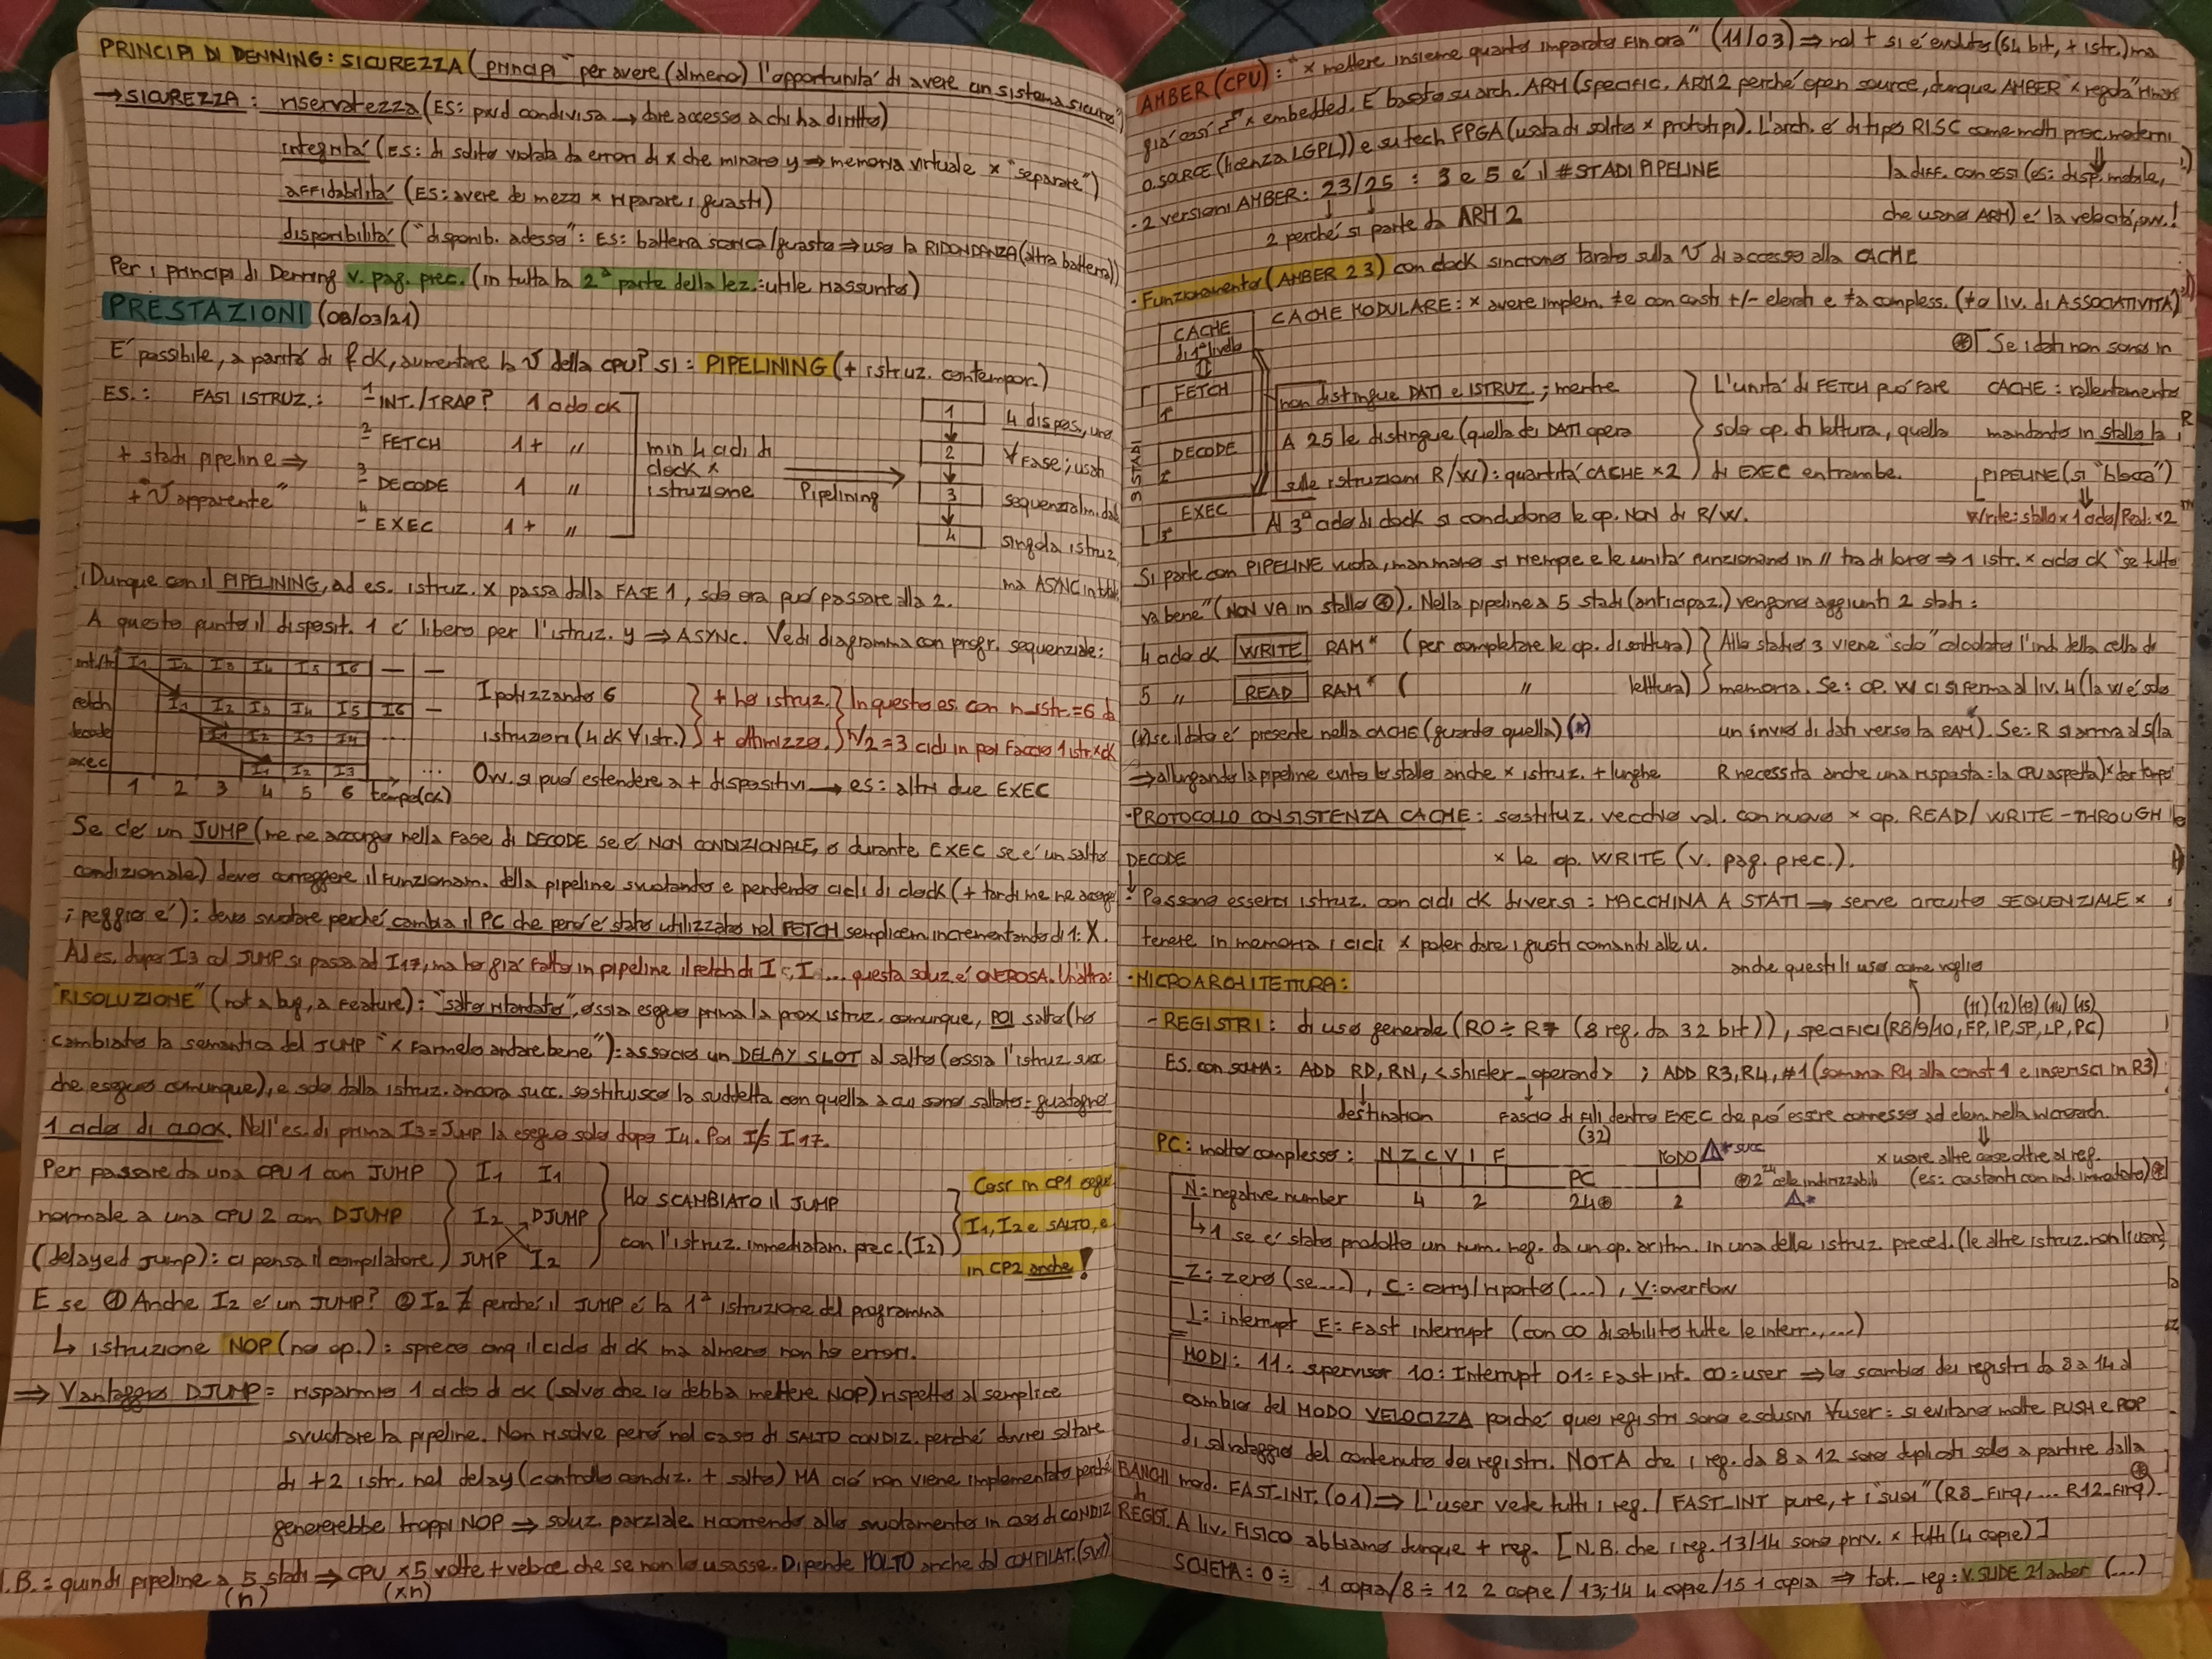 PRINCIPI DI DENNING: SICUREZZA ("principi" per avere (almeno) l'opportunitá di avere un sistema sicuro")
→ SICUREZZA: riservatezza (ES: pwd condivisa → dare accesso a chi ha diritto)
integritá (ES: di solito violata da errori di x che minano y ⇒ memoria virtuale x "separare")
affidabilitá (ES: avere dei mezzi x riparare i guasti)
disponibilitá ("disponib. adesso": ES: batteria scarica/guasta ⇒ uso la RIDONDANZA (altra batteria))
Per i principi di Denning v. pag. prec. (in tutta la 2ª parte della lez.: utile riassunto)
PRESTAZIONI (08/03/21)
É possibile, a paritá di f ck, aumentare la v della CPU? SI: PIPELINING (+ istruz. contempor.)
ES.: FASI ISTRUZ.: 1- INT./TRAP? 1 ciclo ck
2- FETCH 1+ "
3- DECODE 1 "
4- EXEC 1+ "
+ stadi pipeline ⇒
+ "v apparente"
min 4 cicli di
clock x
istruzione
Pipelining
1
2
3
4
4 dispos., uno
∀ fase; usati
sequenzialm. dal
singola istruz.
ma ASYNC in
¡Dunque con il PIPELINING, ad es. istruz. x passa dalla FASE 1, solo ora puó passare alla 2.
A questo punto il disposit. 1 é libero per l'istruz. y ⇒ ASYNC. Vedi diagramma con progr. sequenziale:
int/tr I1 I2 I3 I4 I5 I6 — —
fetch I1 I2 I3 I4 I5 I6 —
decode I1 I2 I3 I4 ...
exec I1 I2 I3 ...
1 2 3 4 5 6 tempo (ck)
Ipotizzando 6
istruzioni (4 ck ∀ istr.)
+ ho istruz.
+ ottimizzo.
In questo es. con n_istr.=6 da
n/2 = 3 cicli in poi faccio 1 istr.xck
Ovv. si puó estendere a + dispositivi → es: altri due EXEC
Se c'é un JUMP (me ne accorgo nella fase di DECODE se é NON CONDIZIONALE, o durante EXEC se é un salto
condizionale) devo correggere il funzionam. della pipeline svuotando e perdendo cicli di clock (+ tardi me ne accorgo
; peggio é): devo svuotare perché cambia il PC che peró é stato utilizzato nel FETCH semplicem. incrementando di 1: X.
Ad es. dopo I3 col JUMP si passa ad I17, ma ho giá fatto in pipeline il fetch di I , I ... questa soluz é ONEROSA. Un'altra:
"RISOLUZIONE" (not a bug, a feature): "salto ritardato", ossia eseguo prima la prox istruz. comunque, POI salto (ho
cambiato la semantica del JUMP "x farmelo andare bene"): associo un DELAY SLOT al salto (ossia l'istruz. succ.
che eseguo comunque), e solo dalla istruz. ancora succ. sostituisco la suddetta con quella a cui sono saltato = guadagno
1 ciclo di clock. Nell'es. di prima I3=JUMP la eseguo solo dopo I4. Poi I5 I17.
Per passare da una CPU 1 con JUMP
normale a una CPU 2 con DJUMP
(delayed jump): ci pensa il compilatore
I1 I1
I2 DJUMP
JUMP I2
Ho SCAMBIATO il JUMP
con l'istruz. immediatam. prec. (I2)
Cosí in CP1 eseguo
I1, I2 e SALTO, e
in CP2 anche!
E se ① Anche I2 é un JUMP? ② I2 ∄ perché il JUMP é la 1ª istruzione del programma
↳ istruzione NOP (no op.): spreco cmq il ciclo di ck ma almeno non ho errori.
⇒ Vantaggio DJUMP = risparmio 1 ciclo di ck (salvo che io debba mettere NOP) rispetto al semplice
svuotare la pipeline. Non risolve peró nel caso di SALTO CONDIZ. perché dovrei saltare
di +2 istr. nel delay (controllo condiz. + salto) MA ció non viene implementato perché
genererebbe troppi NOP ⇒ soluz. parziale ricorrendo allo svuotamento in caso di CONDIZ
N.B.: quindi pipeline a 5 stadi ⇒ CPU x5 volte + veloce che se non lo usasse. Dipende MOLTO anche dal COMPILAT. (SW)
(n) (xn)
AMBER (CPU): "x mettere insieme quanto imparato fin ora" (11/03) ⇒ nel t si é evoluto (64 bit, + istr.) ma
giá cosí x embedded. É basato su arch. ARM (specific. ARM2 perché open source, dunque AMBER "x regola" rimane
o. source (licenza LGPL)) e su tech FPGA (usata di solito x prototipi). L'arch. é di tipo RISC come molti proc. moderni
la diff. con essi (es: disp. mobile,
che usano ARM) é la velocitá, ovv.!
- 2 versioni AMBER: 23/25 : 3 e 5 é il #STADI PIPELINE
2 perché si parte da ARM 2
- Funzionamento (AMBER 23) con clock sincrono tarato sulla v di accesso alla CACHE
CACHE MODULARE: x avere implem. ≠e con costi +/- elevati e ≠a compless. (≠o liv. di ASSOCIATIVITÁ)
CACHE
di 1° livello
FETCH
1°
DECODE
2°
EXEC
3°
3 STADI
non distingue DATI e ISTRUZ.; mentre
A 25 le distingue (quella dei DATI opera
sulle istruzioni R/W): quantitá CACHE x2
L'unitá di FETCH puó fare
solo op. di lettura, quella
di EXEC entrambe.
⊛ Se i dati non sono in
CACHE: rallentamento
mandando in stallo la
PIPELINE (si "blocca")
Write: stallo x 1 ciclo/Read: x2
Al 3° ciclo di clock si concludono le op. NON di R/W.
Si parte con PIPELINE vuota, man mano si riempie e le unitá funzionano in // tra di loro ⇒ 1 istr. x ciclo ck "se tutto
va bene" (NON VA in stallo ⊛). Nella pipeline a 5 stadi (anticipaz.) vengono aggiunti 2 stati:
4 ciclo ck WRITE RAM* (per completare le op. di scrittura)
5 " READ RAM* ( " lettura)
Allo stadio 3 viene "solo" calcolato l'ind. della cella di
memoria. Se: op. W ci si ferma al liv. 4 (la W é solo
un invio di dati verso la RAM). Se: R si arriva al 5 (la
R necessita anche una risposta: la CPU aspetta) x dar tempo
(*) se il dato é presente nella CACHE (guardo quella) (*)
⇒ allungando la pipeline evito lo stallo anche x istruz. + lunghe
- PROTOCOLLO CONSISTENZA CACHE: sostituz. vecchio val. con nuovo x op. READ / WRITE-THROUGH
x le op. WRITE (v. pag. prec.).
DECODE
↓
- Possono esserci istruz. con cicli ck diversi: MACCHINA A STATI → serve circuito SEQUENZIALE x
tenere in memoria i cicli x poter dare i giusti comandi alle u.
- MICROARCHITETTURA:
anche questi li uso come voglio
(11) (12) (13) (14) (15)
- REGISTRI: di uso generale (R0 ÷ R7 (8 reg. da 32 bit)), specifici (R8/9/10, FP, IP, SP, LP, PC)
Es. con somma: ADD RD, RN, <shifter_operand> ; ADD R3, R4, #1 (somma R4 alla const 1 e inserisci in R3)
destination
Fascio di fili dentro EXEC che puó essere connesso ad elem. nella microarch.
(32)
x usare altre cose oltre ai reg.
(es: costanti con ind. immediato) ⊛
PC: molto complesso: N Z C V I F PC MODO ⚠* succ
4 2 24⊛ 2
⊛ 2²⁴ celle indirizzabili
⚠*
N: negative number
↳ 1 se é stato prodotto un num. neg. da un op. aritm. in una delle istruz. preced. (le altre istruz. non li usano)
Z: zero (se....), C: carry/riporto (...), V: overflow
I: interrupt F: fast interrupt (con 00 disabilito tutte le interr., ...)
MODI: 11: supervisor 10: Interrupt 01: Fast int. 00: user ⇒ lo scambio dei registri da 8 a 14 al
cambio del MODO VELOCIZZA poiché quei registri sono esclusivi ∀user: si evitano molte PUSH e POP
di salvataggio del contenuto dei registri. NOTA che i reg. da 8 a 12 sono duplicati solo a partire dalla
mod. FAST_INT. (01) ⇒ L'user vede tutti i reg. / FAST_INT pure, + i "suoi" (R8_firq, ... R12_firq). ⊛
BANCHI
di
REGIST.
A liv. FISICO abbiamo dunque + reg. [N.B. che i reg. 13/14 sono priv. x tutti (4 copie)]
SCHEMA: 0 ÷ 1 copia / 8 ÷ 12 2 copie / 13;14 4 copie / 15 1 copia ⇒ tot._reg: V. SLIDE 21 amber (...)